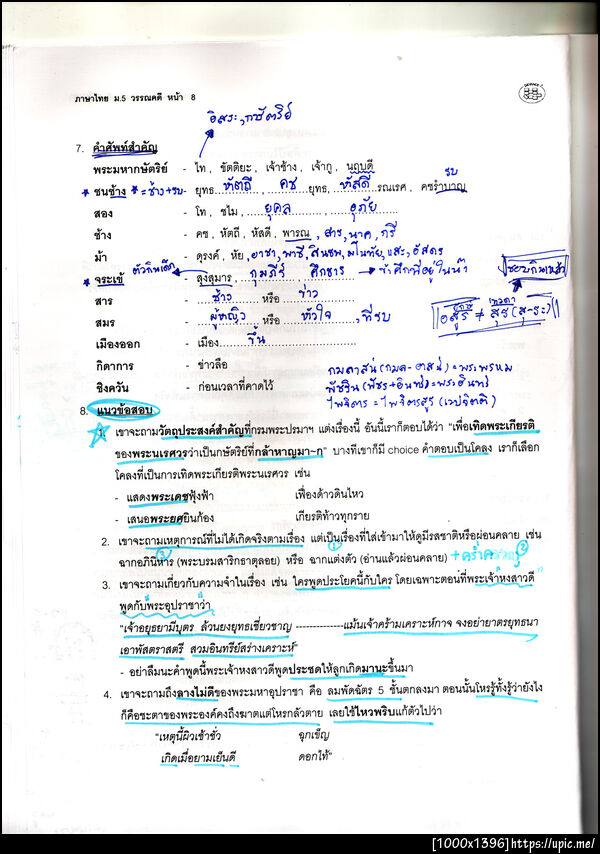 ภาษาไทย ม.5 วรรณคดี หน้า 8
อิสระ, กษัตริย์
7. คำศัพท์สำคัญ
พระมหากษัตริย์ - ไท , ขัตติยะ , เจ้าช้าง , เจ้ากู , นฤบดี
รบ
* ชนช้าง * = ช้าง+รบ - ยุทธ...หัตถี... , คช ยุทธ, หัสดี รณเรศ , คชรำบาญ
สอง - โท , ชไม , ยุคล , อุภัย
ช้าง - คช , หัตถี , หัสดี , พารณ , สาร, นาค, กรี
ม้า - ดุรงค์ , หัย, อาชา, พาชี, สินธพ, มโนมัย, แสะ, อัสดร
* จระเข้ - สุงสุมาร , กุมภีร์ , ศึกธาร
สาร - ช้าง หรือ ข่าว
สมร - ผู้หญิง หรือ หัวใจ , ที่รบ
ยักษ์ เทวดา
อสูร ≠ สุร (สุ-ระ)
เมืองออก - เมือง...ขึ้น
กิดาการ - ข่าวลือ
ชิงควัน - ก่อนเวลาที่คาดไว้
กมลาสน์ (กมล+อาสน์) = พระพรหม
พัชรินทร์ (พัชร+อินทร์) = พระอินทร์
ไพจิตร = ไพจิตรสูร (เวปจิตติ)
8. แนวข้อสอบ
1. เขาจะถามวัตถุประสงค์สำคัญที่กรมพระปรมาฯ แต่งเรื่องนี้ อันนี้เราก็ตอบได้ว่า "เพื่อเทิดพระเกียรติ
ของพระนเรศวรว่าเป็นกษัตริย์ที่กล้าหาญมา-ก" บางทีเขาก็มี choice คำตอบเป็นโคลง เราก็เลือก
โคลงที่เป็นการเทิดพระเกียรติพระนเรศวร เช่น
- แสดงพระเดชฟุ้งฟ้า เฟื่องด้าวดินไหว
- เสนอพระยศยินก้อง เกียรติท้าวทุกราย
2. เขาจะถามเหตุการณ์ที่ไม่ได้เกิดจริงตามเรื่อง แต่เป็นเรื่องที่ใส่เข้ามาให้ดูมีรสชาติหรือผ่อนคลาย เช่น
ฉากอภินิหาร (พระบรมสาริกธาตุลอย) หรือ ฉากแต่งตัว (อ่านแล้วผ่อนคลาย)
3. เขาจะถามเกี่ยวกับความจำในเรื่อง เช่น ใครพูดประโยคนี้กับใคร โดยเฉพาะตอนที่พระเจ้าหงสาวดี
พูดกับพระอุปราชาว่า
"เจ้าอยุธยามีบุตร ล้วนยงยุทธเชี่ยวชาญ --------------แม้นเจ้าคร้ามเคราะห์กาจ จงอย่ายาตรยุทธนา
เอาพัสตราสตรี สวมอินทรีย์สร่างเคราะห์"
- อย่าลืมนะคำพูดนี้พระเจ้าหงสาวดีพูดประชดให้ลูกเกิดมานะขึ้นมา
4. เขาจะถามถึงลางไม่ดีของพระมหาอุปราชา คือ ลมพัดฉัตร 5 ชั้นตกลงมา ตอนนั้นโหรรู้ทั้งรู้ว่ายังไง
ก็คือชะตาของพระองค์คงถึงฆาตแต่โหรกลัวตาย เลยใช้ไหวพริบแก้ตัวไปว่า
"เหตุนี้ผิวเช้าชั่ว ฉุกเข็ญ
เกิดเมื่อยามเย็นดี ดอกไท้"
[1000x1396]https://upic.me/